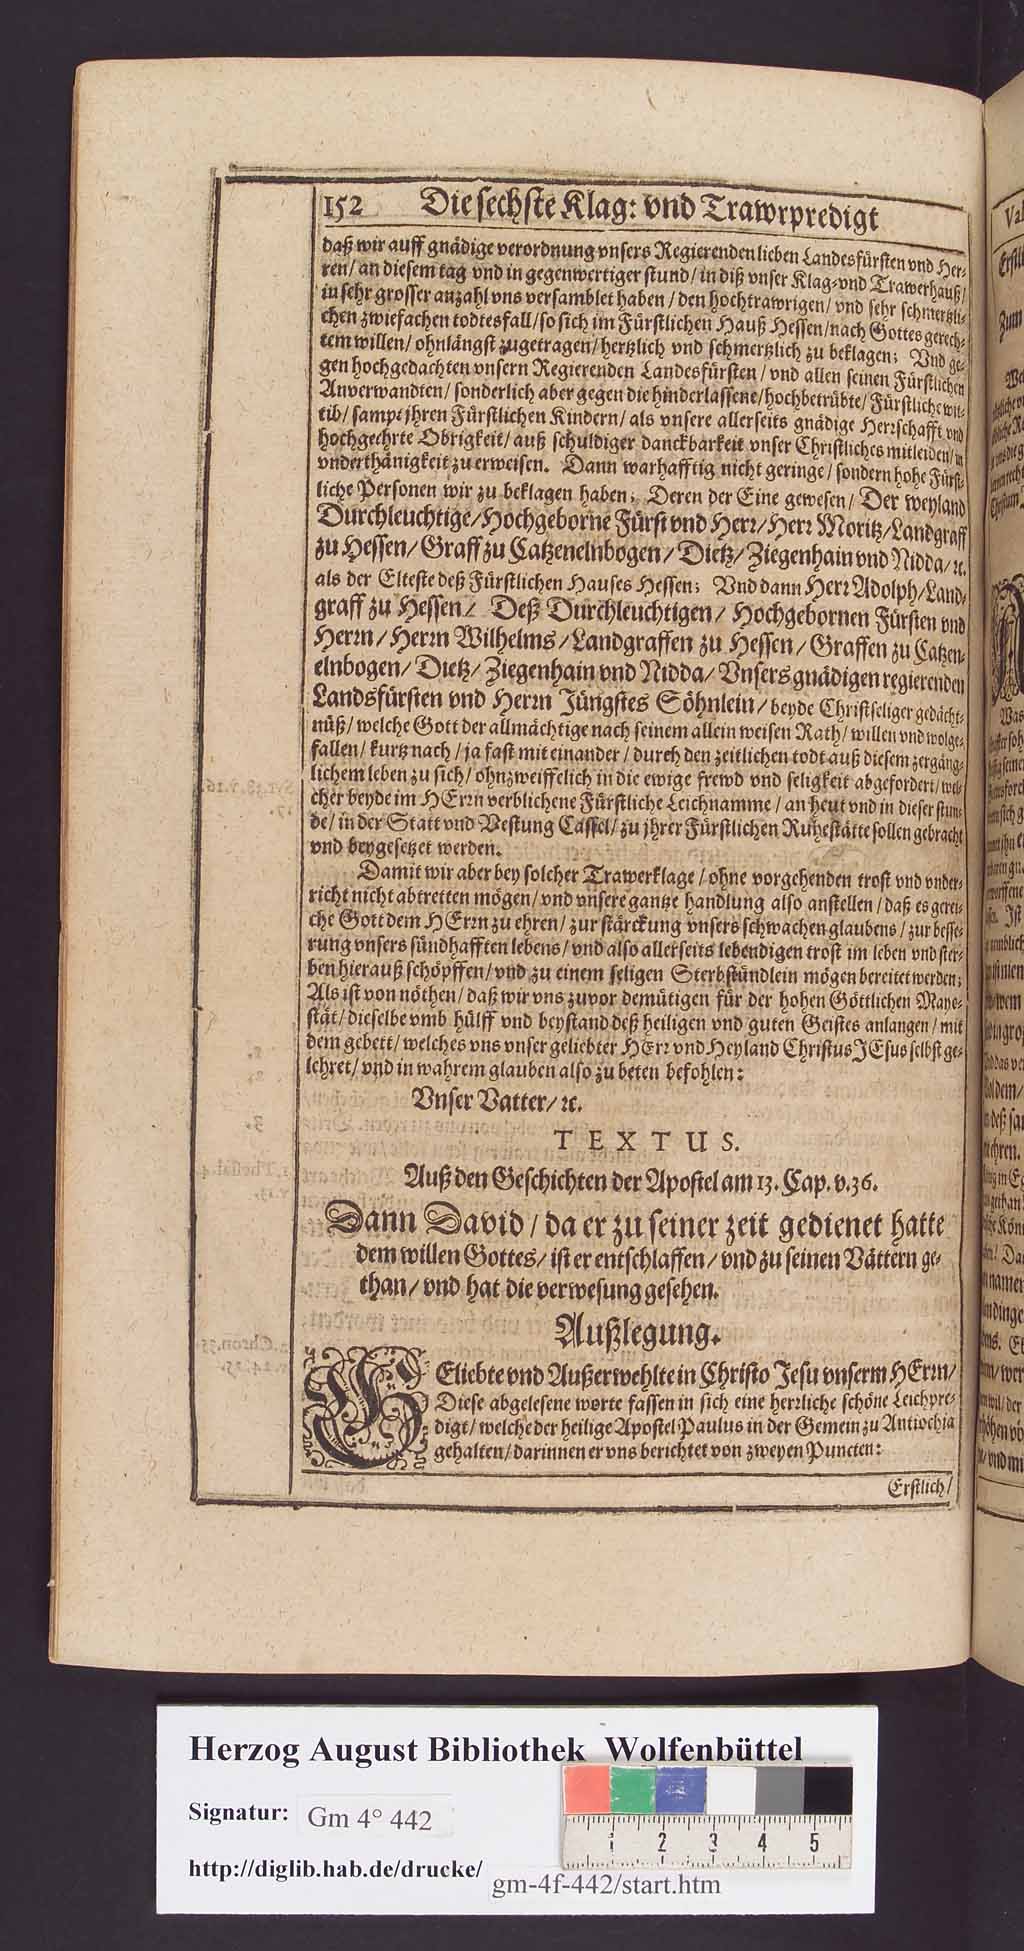 152 Die sechste Klag: vnd Trawrpredigt
daß wir auff gnädige verordnung vnsers Regierenden lieben Landesfürsten vnd Her-
ren/ an diesem tag vnd in gegenwertiger stund/ in diß vnser Klag- vnd Trawerhauß/
in sehr grosser anzahl vns versamblet haben/ den hochtrawrigen/ vnd sehr schmertzli-
chen zwiefachen todtesfall/ so sich im Fürstlichen Hauß Hessen/ nach Gottes gerech-
tem willen/ ohnlängst zugetragen/ hertzlich vnd schmertzlich zu beklagen; Vnd ge-
gen hochgedachten vnsern Regierenden Landesfürsten/ vnd allen seinen Fürstlichen
Anverwandten/ sonderlich aber gegen die hinderlassene/ hochbetrübte/ Fürstliche wit-
tib/ sampt jhren Fürstlichen Kindern/ als vnsere allerseits gnädige Herrschafft vnd
hochgeehrte Obrigkeit/ auß schuldiger danckbarkeit vnser Christliches mitleiden/ in
vnderthänigkeit zu erweisen. Dann warhafftig nicht geringe/ sondern hohe Fürst-
liche Personen wir zu beklagen haben; Deren der Eine gewesen/ Der weyland
Durchleuchtige/ Hochgeborne Fürst vnd Herr/ Herr Moritz/ Landgraff
zu Hessen/ Graff zu Catzenelnbogen/ Dietz/ Ziegenhain vnd Nidda/ ꝛc.
als der Elteste deß Fürstlichen Hauses Hessen; Vnd dann Herr Adolph/ Land-
graff zu Hessen/ Deß Durchleuchtigen/ Hochgebornen Fürsten vnd
Herrn/ Herrn Wilhelms/ Landgraffen zu Hessen/ Graffen zu Catzen-
elnbogen/ Dietz/ Ziegenhain vnd Nidda/ Vnsers gnädigen regierenden
Landsfürsten vnd Herrn Jüngstes Söhnlein/ beyde Christseliger gedächt-
nüß/ welche Gott der allmächtige nach seinem allein weisen Rath/ willen vnd wolge-
fallen/ kurtz nach/ ja fast mit einander/ durch den zeitlichen todt auß diesem zergäng-
lichem leben zu sich/ ohnzweiffelich in die ewige frewd vnd seligkeit abgefordert/ wel-
cher beyde im HErrn verblichene Fürstliche Leichnamme/ an heut vnd in dieser stun-
de/ in der Statt vnd Vestung Cassel/ zu jhrer Fürstlichen Ruhestätte sollen gebracht
vnd beygesetzet werden.
Damit wir aber bey solcher Trawerklage/ ohne vorgehenden trost vnd vnder-
richt nicht abtretten mögen/ vnd vnsere gantze handlung also anstellen/ daß es gerei-
che Gott dem HErrn zu ehren/ zur stärckung vnsers schwachen glaubens/ zur besse-
rung vnsers sündhafften lebens/ vnd also allerseits lebendigen trost im leben vnd ster-
ben hierauß schöpffen/ vnd zu einem seligen Sterbständlein mögen bereitet werden;
Als ist von nöthen/ daß wir vns zuvor demütigen für der hohen Göttlichen Maye-
stät/ dieselbe vmb hülff vnd beystand deß heiligen vnd guten Geistes anlangen/ mit
dem gebett/ welches vns vnser geliebter HErr vnd Heyland Christus JEsus selbst ge-
lehret/ vnd in wahrem glauben also zu beten befohlen:
Vnser Vatter/ ꝛc.
TEXTUS.
Auß den Geschichten der Apostel am 13. Cap. v. 36.
Dann David/ da er zu seiner zeit gedienet hatte
dem willen Gottes/ ist er entschlaffen/ vnd zu seinen Vättern ge-
than/ vnd hat die verwesung gesehen.
Außlegung.
GEliebte vnd Außerwehlte in Christo Jesu vnserm HErrn/
Diese abgelesene worte fassen in sich eine herrliche schöne Leichpre-
digt/ welche der heilige Apostel Paulus in der Gemein zu Antiochia
gehalten/ darinnen er vns berichtet von zweyen Puncten:
Erstlich/
Herzog August Bibliothek Wolfenbüttel
Signatur: Gm 4° 442
http://diglib.hab.de/drucke/ gm-4f-442/start.htm
1 2 3 4 5